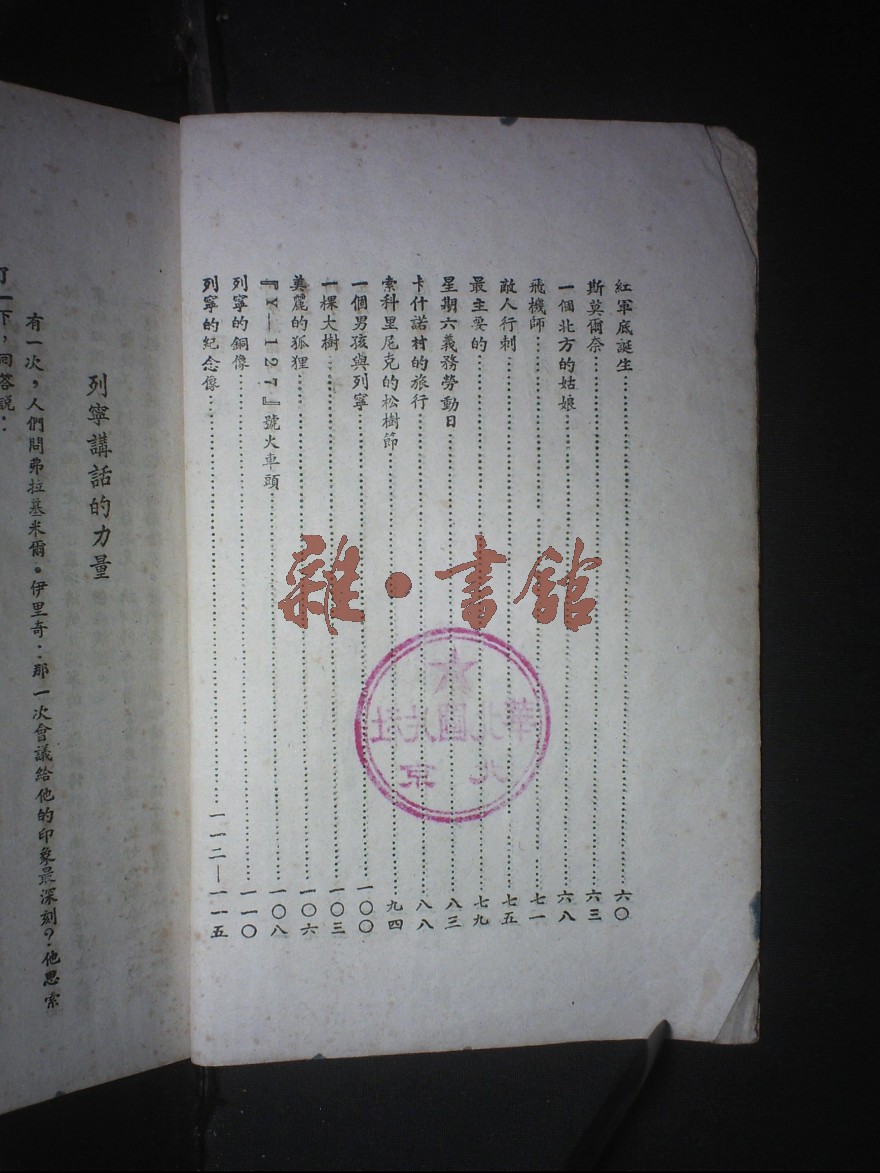 紅軍底誕生……六〇
斯莫爾奈……六三
一個北方的姑娘……六八
飛機師……七一
敵人行刺……七五
最主要的……七九
星期六義務勞動日……八三
卡什諾村的旅行……八八
索科里尼克的松樹節……九四
一個男孩與列寧……一〇〇
一棵大樹……一〇三
美麗的狐狸……一〇六
『Y—127』號火車頭……一〇八
列寧的銅像……一一〇
列寧的紀念像……一一二—一一五
列寧講話的力量
有一次，人們問弗拉基米爾。伊里奇：那一次會議給他的印象最深刻？他思索
了一下，回答說：
雜·書館
華北圖片社
北京